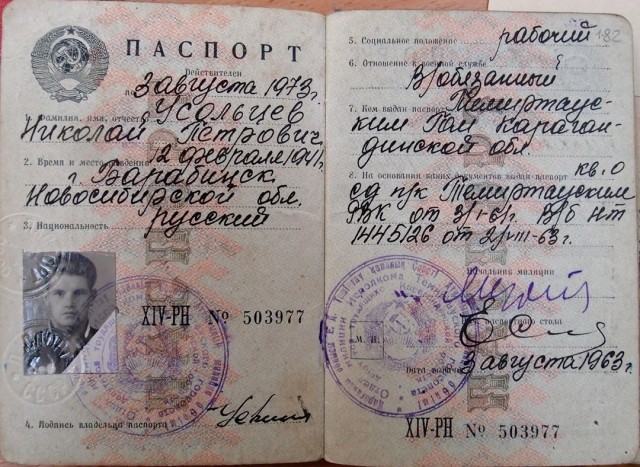 ПАСПОРТ
Действителен
по 3 августа 1973г.
1. Фамилия, имя, отчество Усольцев
Николай Петрович
2. Время и место рождения 12 февраля 1941г
г. Барабинск
Новосибирской обл.
3. Национальность русский
XIV-РН № 503977
4. Подпись владельца паспорта
5. Социальное положение рабочий
182
6. Отношение к военной службе
В/обязанный
7. Кем выдан паспорт Темиртаус-
ким ГОМ Караган-
динской обл.
8. На основании каких документов выдан паспорт
кв. о
сд п/к Темиртауским
от В/б НТ
1445126 от 2/VIII-63г.
Начальник милиции
паспортного стола
М. П.
Дата выдачи 3 августа 1963г.
XIV-РН № 503977